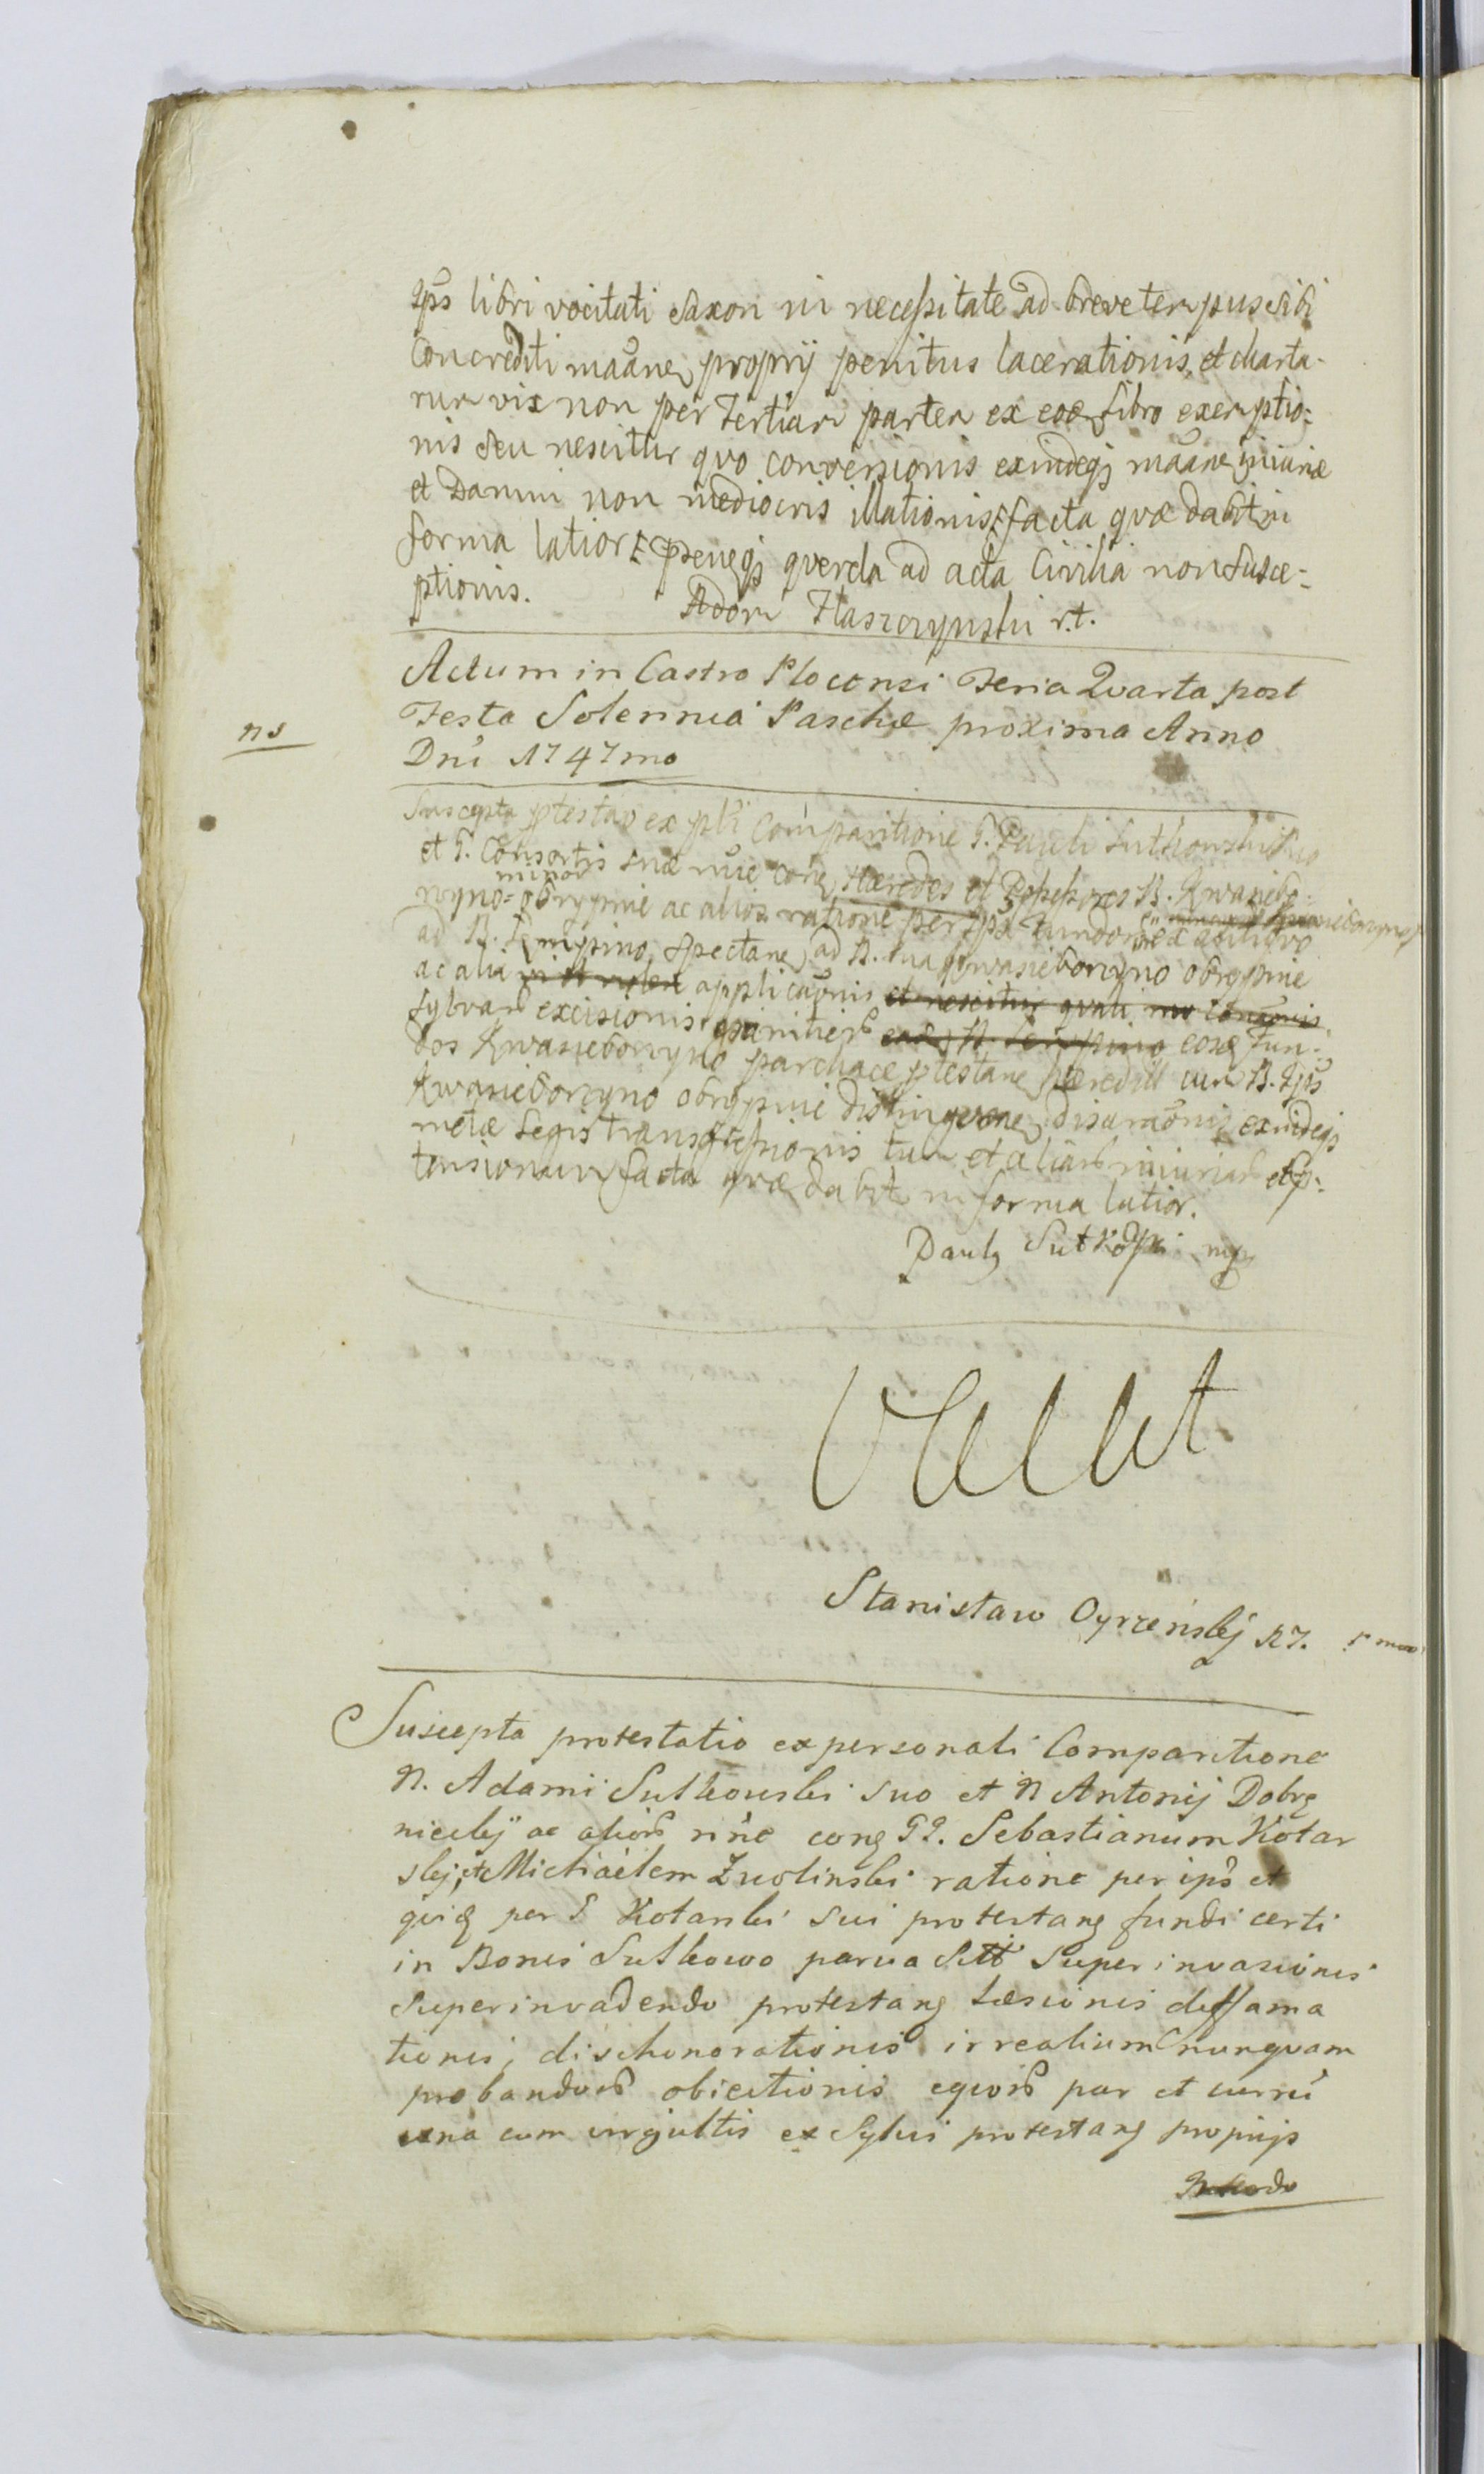 Ips libri vocitati Saxon in necessitate ad breve tempus sibi
Concrediti maane proprij penitus lacerationis, et charta-
rum vix non per Tertiam partem ex eod libro exemptio-
nis seu nescitur quo conversionis exindeq maane iniuriæ
et Damni non mediocris illationis facta quæ dabit in
forma latiori peneq querela ad acta Civilia non susce-
ptionis. Adam r.t.
Actum in Castro Plocensi Feria Quarta post
Festa Solennia Paschæ proxima Anno
Dni 1747mo
ns
Suscepta ptestao ex pli Comparitione G. Pauli Sutkowski suo
et G. Consortis suæ nnie con Hæredes et Possessores B. Kwasiebo-
minor
rzyno obrypnie ac alios ratione per ipsos Fundorum ex antiquo
ad B. spectan ad B. sua Kwasieborzyno obrypnie
ac alia applicaonis et nescitur quali
sylvar excisionis eosq Fun-
dos Kwasieborzyno parchace ptestan hæredill cum B. Ips
Kwasieborzyno obrypnie distinguen disaraonis exindeqs
metæ Legis transgressionis tum et aliar iniuriar
tensionum facta quæ dabit in forma latior.
Pauls Sutkowski mp
Vacat
Stanisław Oyrzenskj RT.
Suscepta protestatio ex personali Comparitione
N. Adami Sutkowski suo et N Antonij Dobrę
nieckij ac alior nne cong GG. Sebastianum Kotar
skj, et Michaelem Zwolinski ratione per ips et
quidq per G Kotarski sui protestang fundi certi
in Bonis Sutkowo parva Sitt Super invasionis
Superinvadendo protestang Læsionis deffama
tionis, dishonorationis irrealium nunquam
probandor obiectionis equor par et curru
una cum virgultis ex Sylvis protestang proprijs